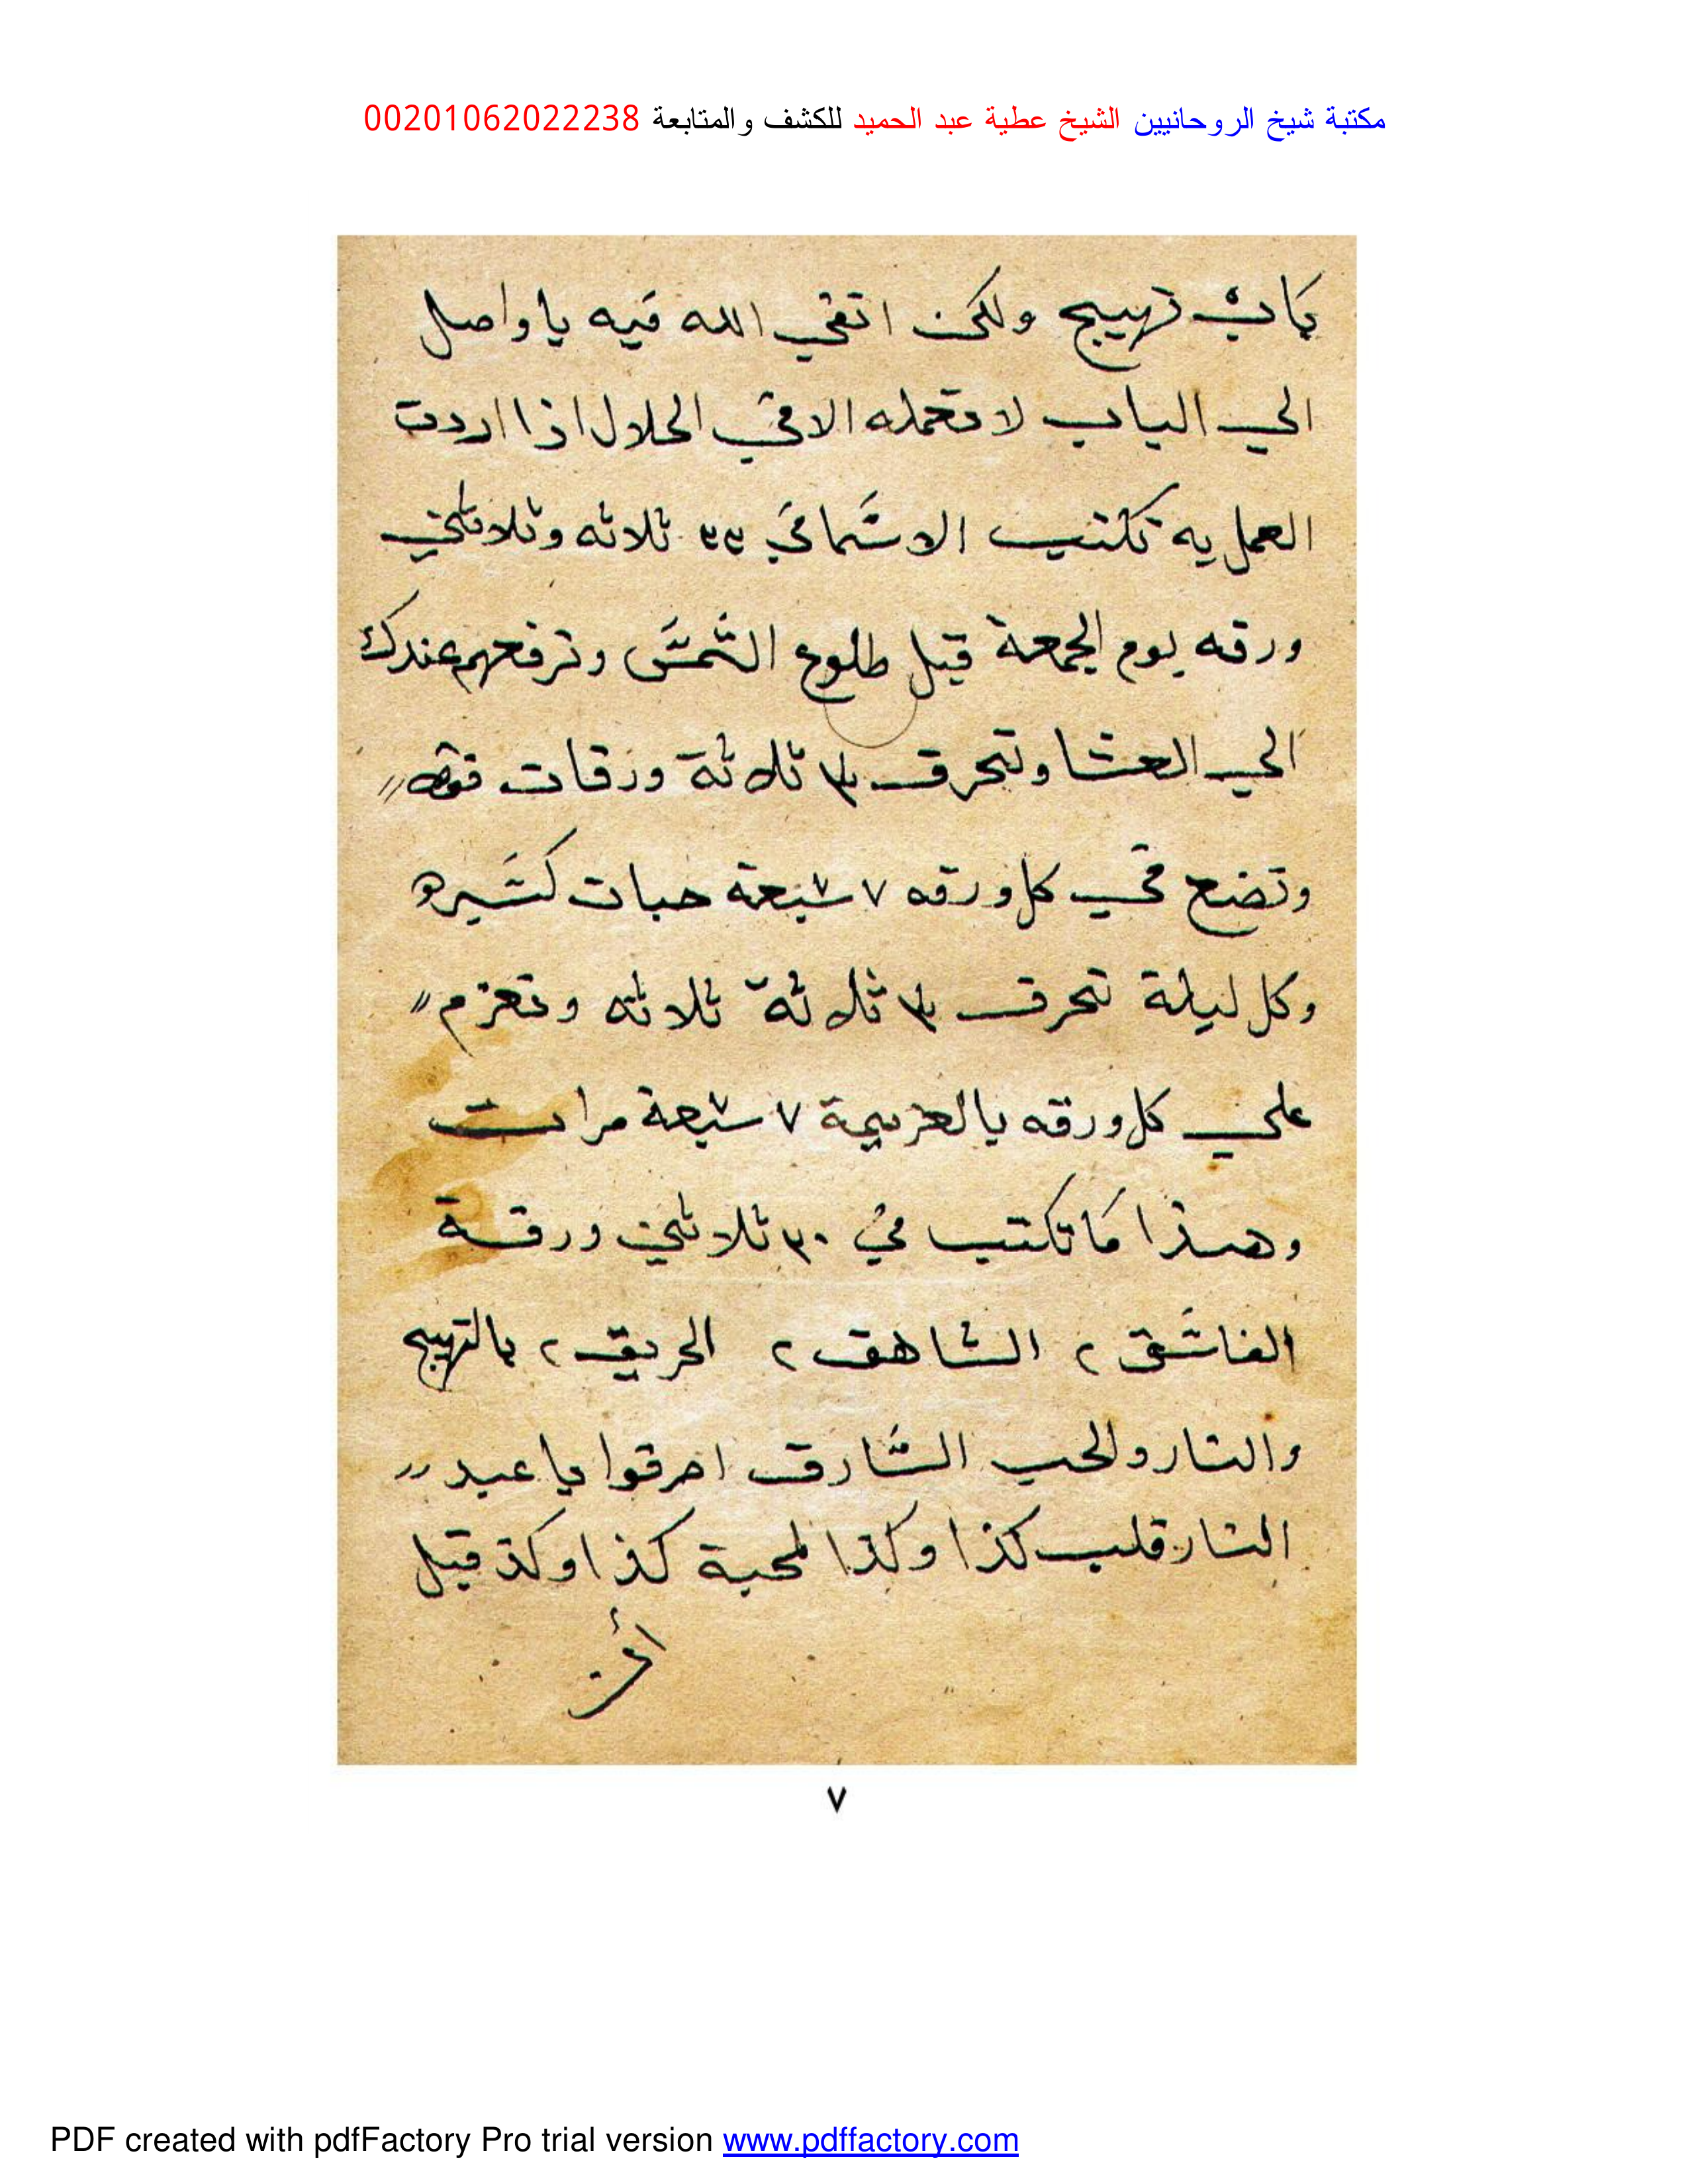 مكتبة شيخ الروحانيين الشيخ عطية عبد الحميد للكشف والمتابعة 00201062022238
باب تهييج ولكن اتقي الله فيه يا واصل
الي الباب لا تعمله الا في الحلال اذا اردت
العمل به تكتب الاسماء في ٣٣ ثلاثه وثلاثين
ورقه يوم الجمعة قبل طلوع الشمس وترفعهم عندك
الي العشا وتحرق ٣ ثلاثة ورقات فقط
وتضع في كل ورقه ٧ سبعة حبات كسبره
وكل ليلة تحرق ٣ ثلاثة ثلاثه وتعزم
علي كل ورقه بالعزيمة ٧ سبعة مرات
وهذا ما تكتب في ٣٠ ثلاثين ورقة
الشاهق ٢ الحريق ٢ بالتهييج
والنار والحب احرقوا يا عبيد
النار قلب كذا وكذا لمحبة كذا وكذ قبل
٧
PDF created with pdfFactory Pro trial version www.pdffactory.com